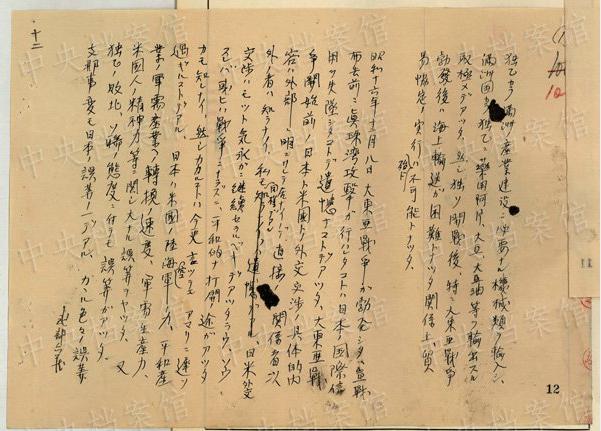 独乙カラ満洲ノ産業建設ニ必要ナル機械類ヲ輸入シ、
満洲国ガ独乙ニ薬用阿片、大豆、大豆油等ヲ輸出スル
取極メデアツタ。然シ独ソ開戦後、特ニ大東亜戦争
勃発後ハ海上輸送ガ困難トナツタ関係上、貿
易協定ノ実行ハ不可能トナツタ。
昭和十六年十二月八日大東亜戦争ガ勃発シタ。宣戦
布告前ニ真珠湾攻撃ガ行ハレタコトハ日本ノ国際信
用ヲ失墜シタコトデ遺憾ナコトデアツタ。大東亜戦
争開始前ノ日本ト米国トノ外交交渉ノ具体的内
容ハ外部ニ明ニサレテ居ナイノデ直接ノ関係者以
外ノ者ハ知ラナイ。私モ同様デアル。日米外交
交渉ハモツト気永ガニ継続セラルベキデアツタラウ。ソウ
スレバ或ヒハ戦争ニナラズニ、平和的ナ打開ノ途ガアツタ
カモ知レナイ。然シカカルコトハ今更言ツテモアマリニ遅ク
過ギルコトデアル。日本ハ米国ノ陸海軍ノ力、平和産
業ノ軍需産業ヘノ転換ノ速度、軍需生産力、
米国人ノ精神力等ニ関シ大ナル誤算ヲヤツタ。又
独乙ノ敗北、ソ聯ノ態度ニ付テモ誤算ガアツタ。
支那事変モ日本ノ誤算ノ一デアル。カカル色々ノ誤算
十二
12
中央档案馆